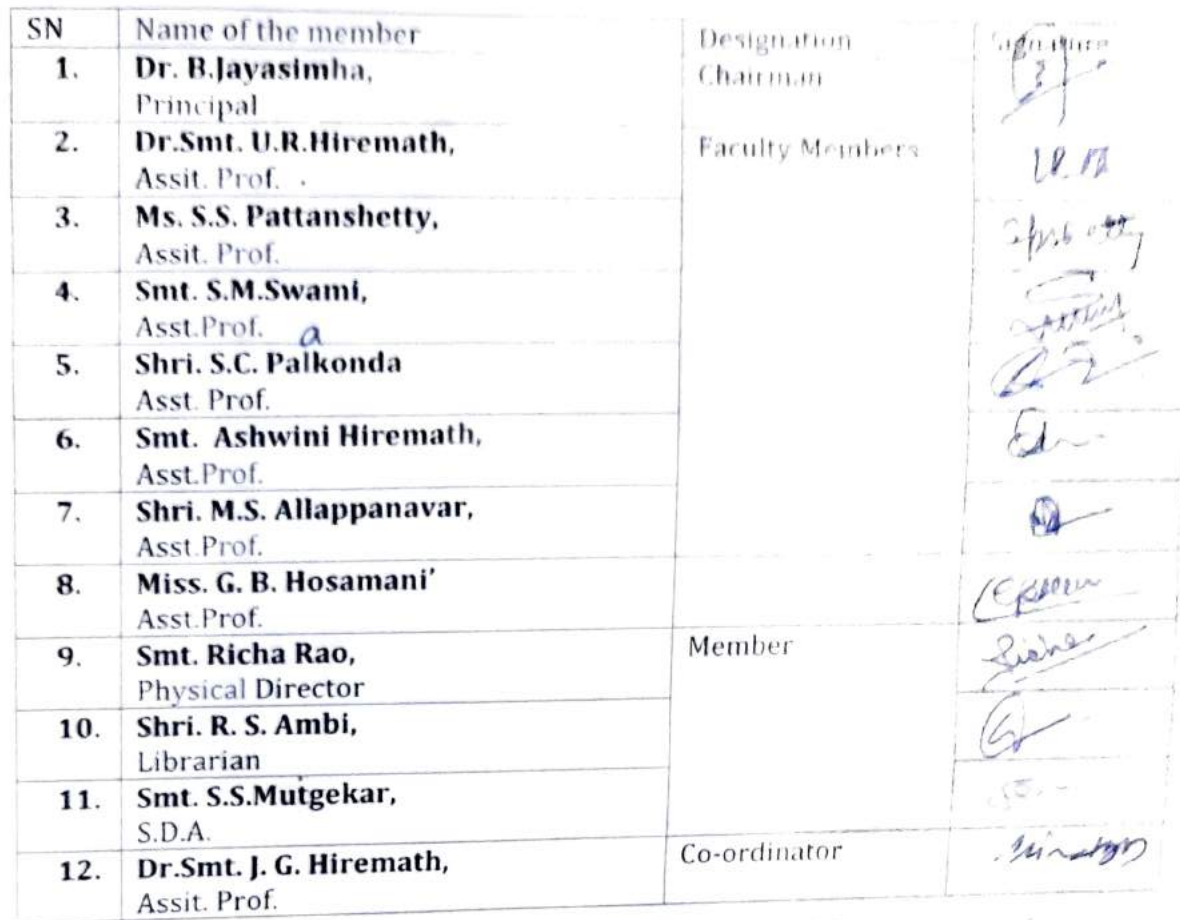 SN Name of the member Designation Signature
1. Dr. B.Jayasimha, Chairman
Principal
2. Dr.Smt. U.R.Hiremath, Faculty Members
Assit. Prof.
3. Ms. S.S. Pattanshetty,
Assit. Prof.
4. Smt. S.M.Swami,
Asst.Prof.
a
5. Shri. S.C. Palkonda
Asst. Prof.
6. Smt. Ashwini Hiremath,
Asst.Prof.
7. Shri. M.S. Allappanavar,
Asst.Prof.
8. Miss. G. B. Hosamani’
Asst.Prof.
9. Smt. Richa Rao, Member
Physical Director
10. Shri. R. S. Ambi,
Librarian
11. Smt. S.S.Mutgekar,
S.D.A.
12. Dr.Smt. J. G. Hiremath, Co-ordinator
Assit. Prof.